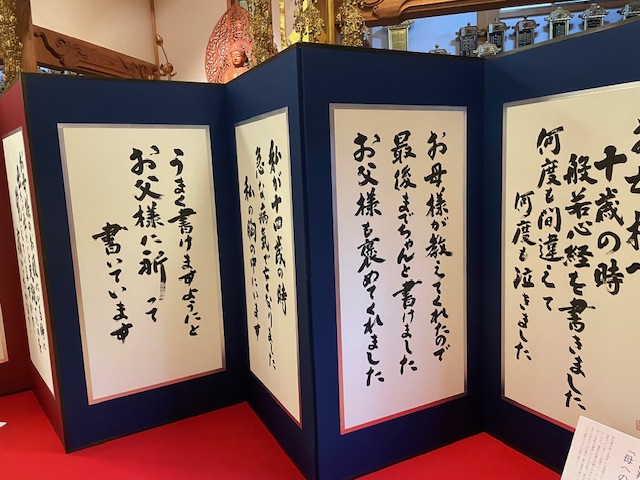 十歳の時
般若心経を書きました
何度も間違えて
何度も泣きました
お母様が教えてくれたので
最後までちゃんと書けました
お父様も褒めてくれました
私が十四歳の時
急な病気で亡くなりました
私の胸の中にいます
うまく書けますようにと
お父様に祈って
書いています
「母への